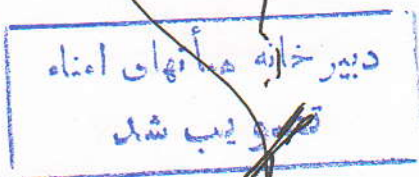 دبیر خانه هیأتهای امناء
تصویب شد